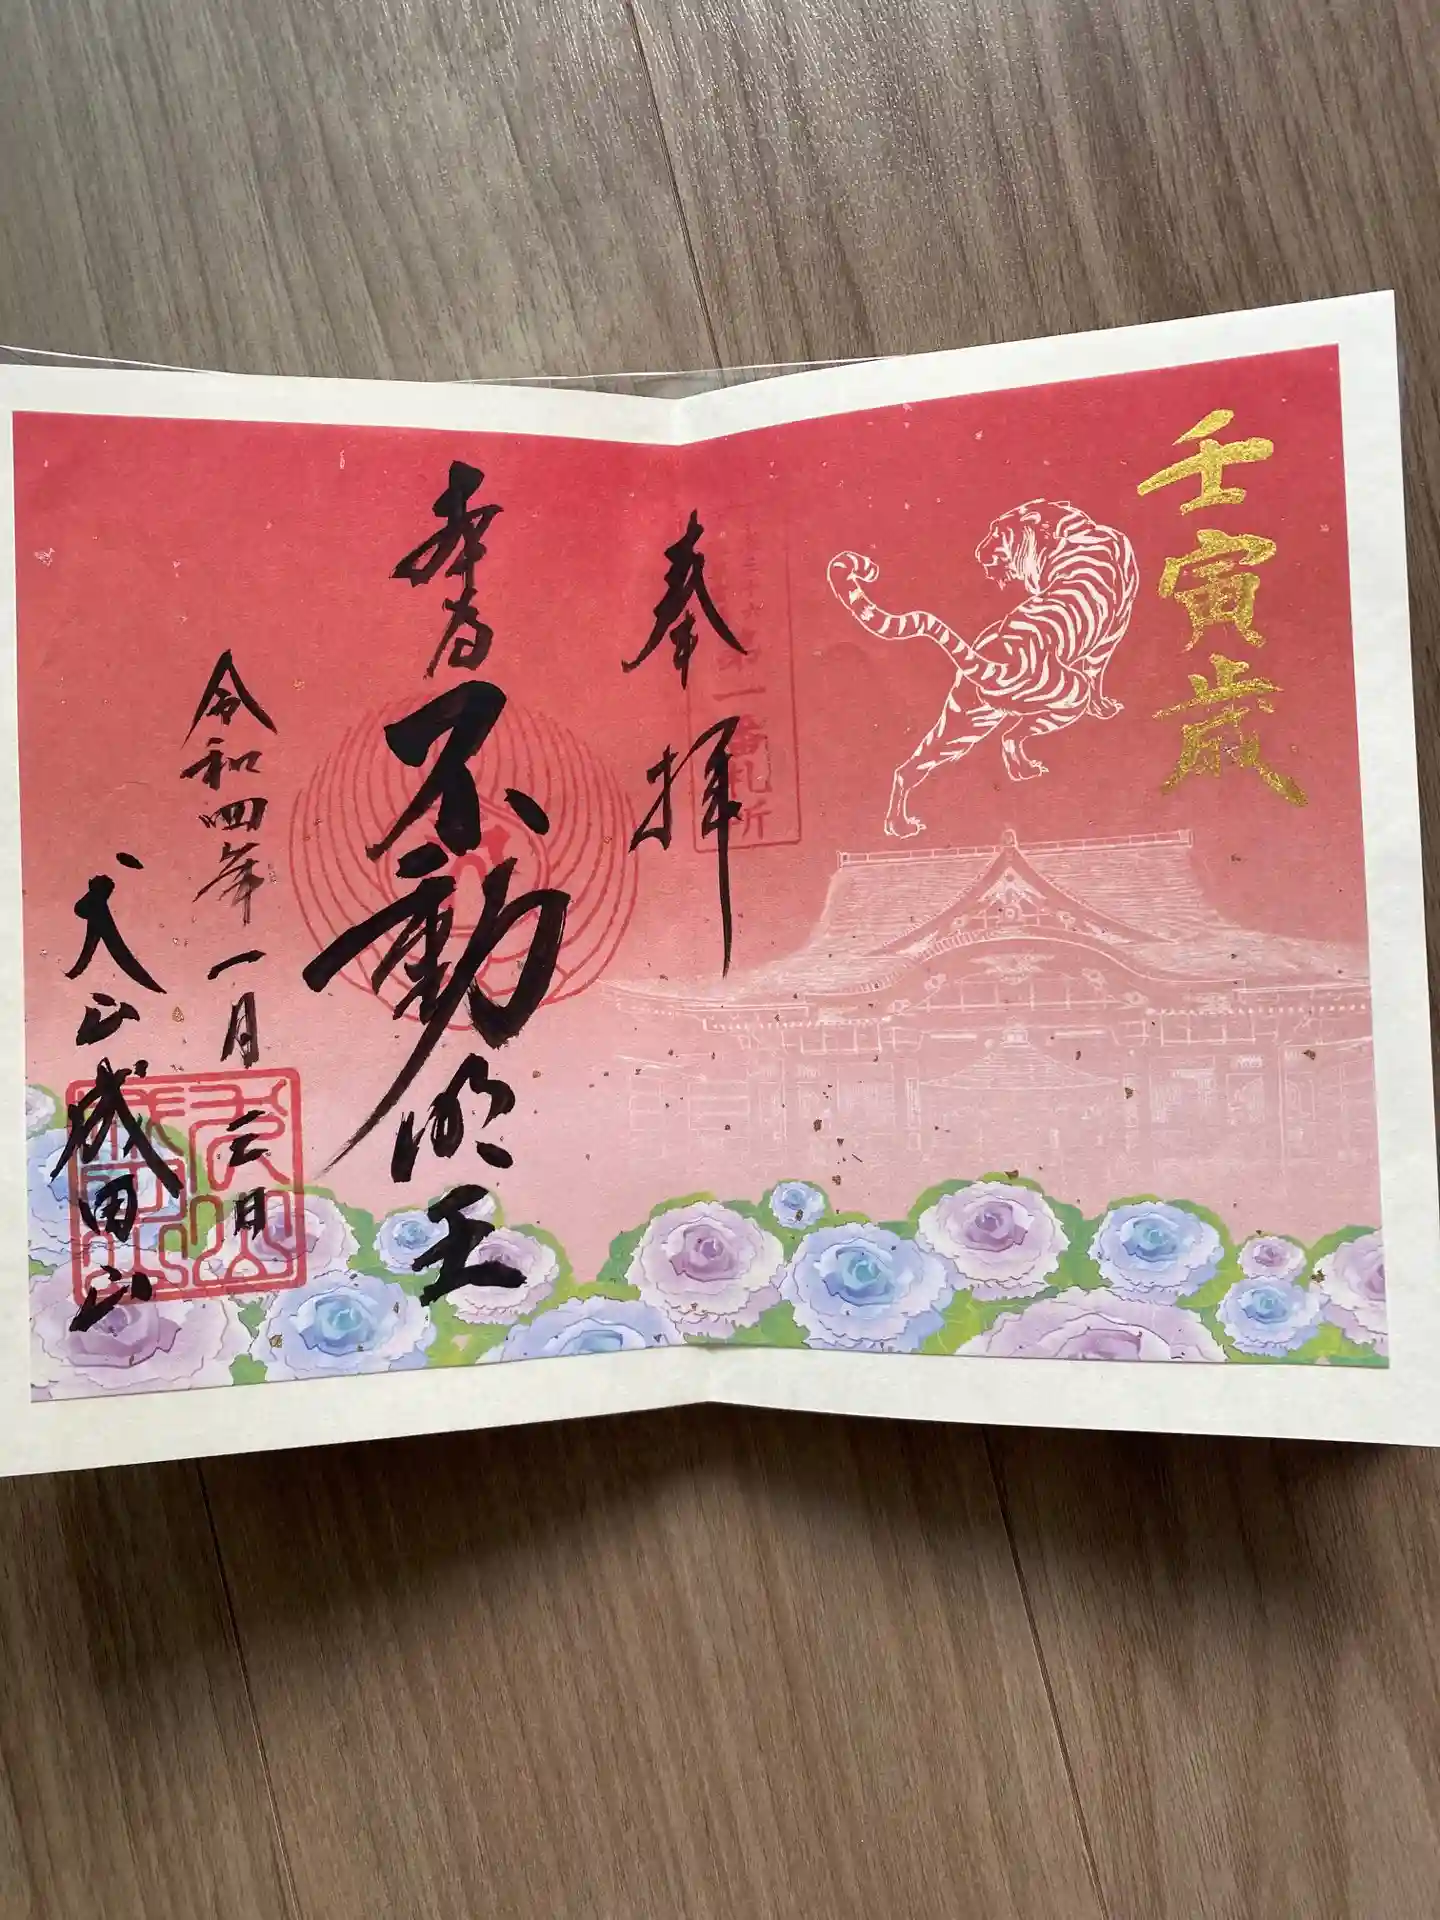 壬寅歳
奉拝
第一番札所
本尊
不動明王
令和四年一月二日
犬山成田山